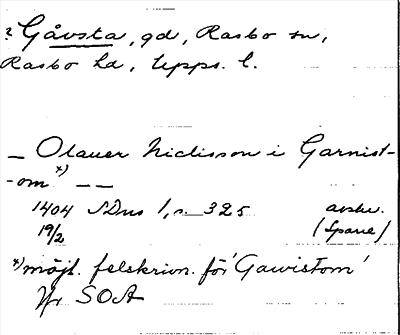 ? Gåvsta, gd, Rasbo sn,
Rasbo hd, Upps. l.
— Olauer Niclisson i Garnist-
-om *) — —
1404 SDns 1, s. 325 avskr.
19/2 (Spare)
*) möjl. felskrivn. för 'Gawistom'
Jfr SOA